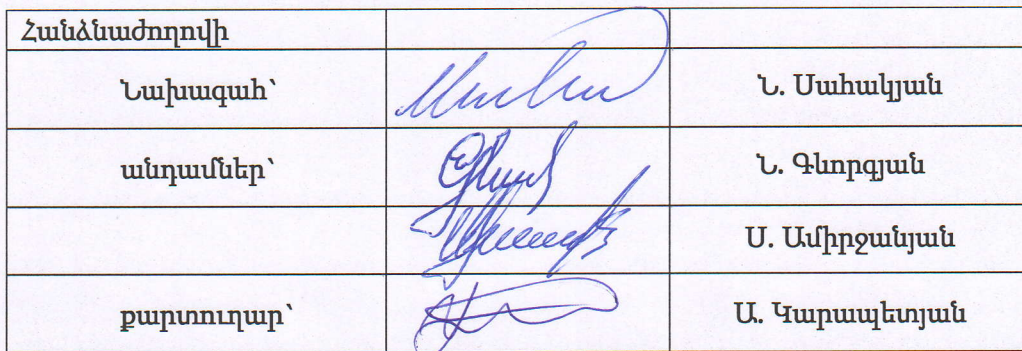 Հանձնաժողովի
Նախագահ՝ Ն. Սահակյան
անդամներ՝ Ն. Գևորգյան
Ս. Ամիրջանյան
քարտուղար՝ Ա. Կարապետյան